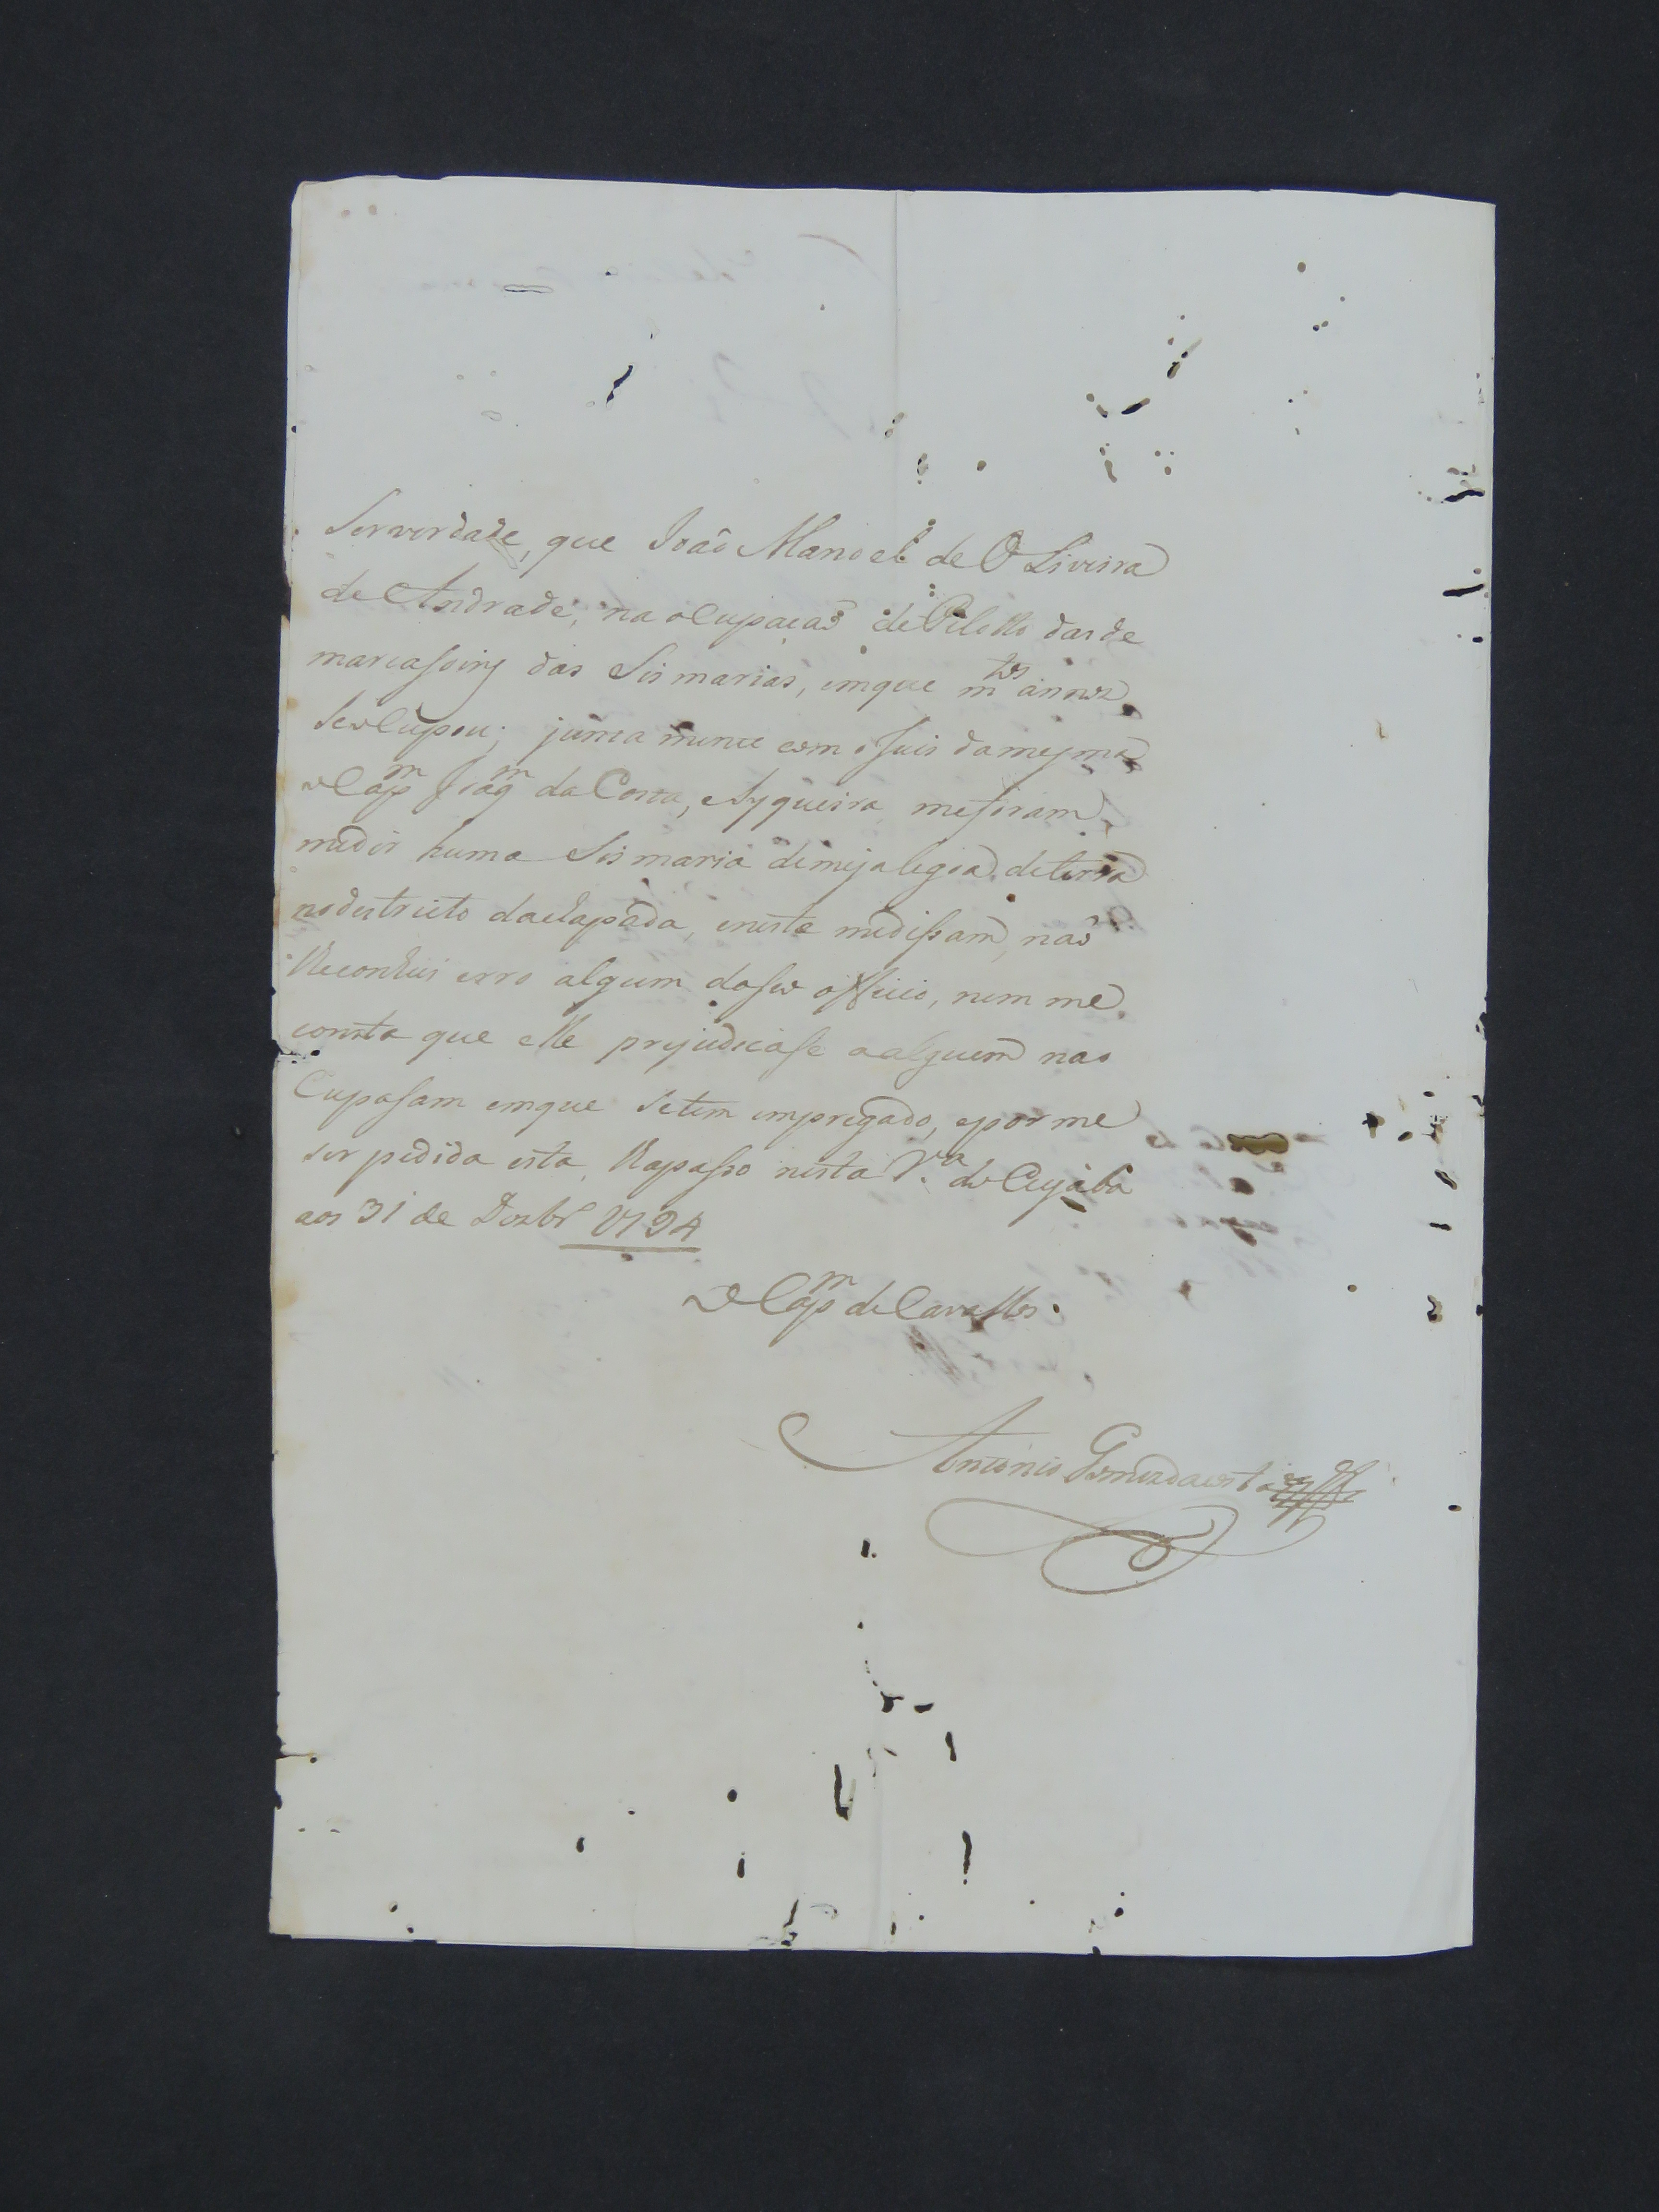 Serverdade, que João Manoel de OLiveira
de Andrade, na ocupacaõ de Pilotto dasde
marcasoins das Sismarias, emque m.tos annos
seocupou; junta mente com o Juis damesma
o Cap.m Joaq.m da Costa, eSyqueira meforam
medir huma Sismaria demeja legoa deterra
nodestricto dachapada, eneste medissam, naõ
Reconheci erro algum doseo officio, nem me
consta que elle prejudicase aalguem nao
Cupasam emque setem empregado, epor me
ser pedida esta, Rapasso nesta V.a do Cuyaba
aos 31 de Dezbr.o 1794
O Cap.m de Cavallos.
António